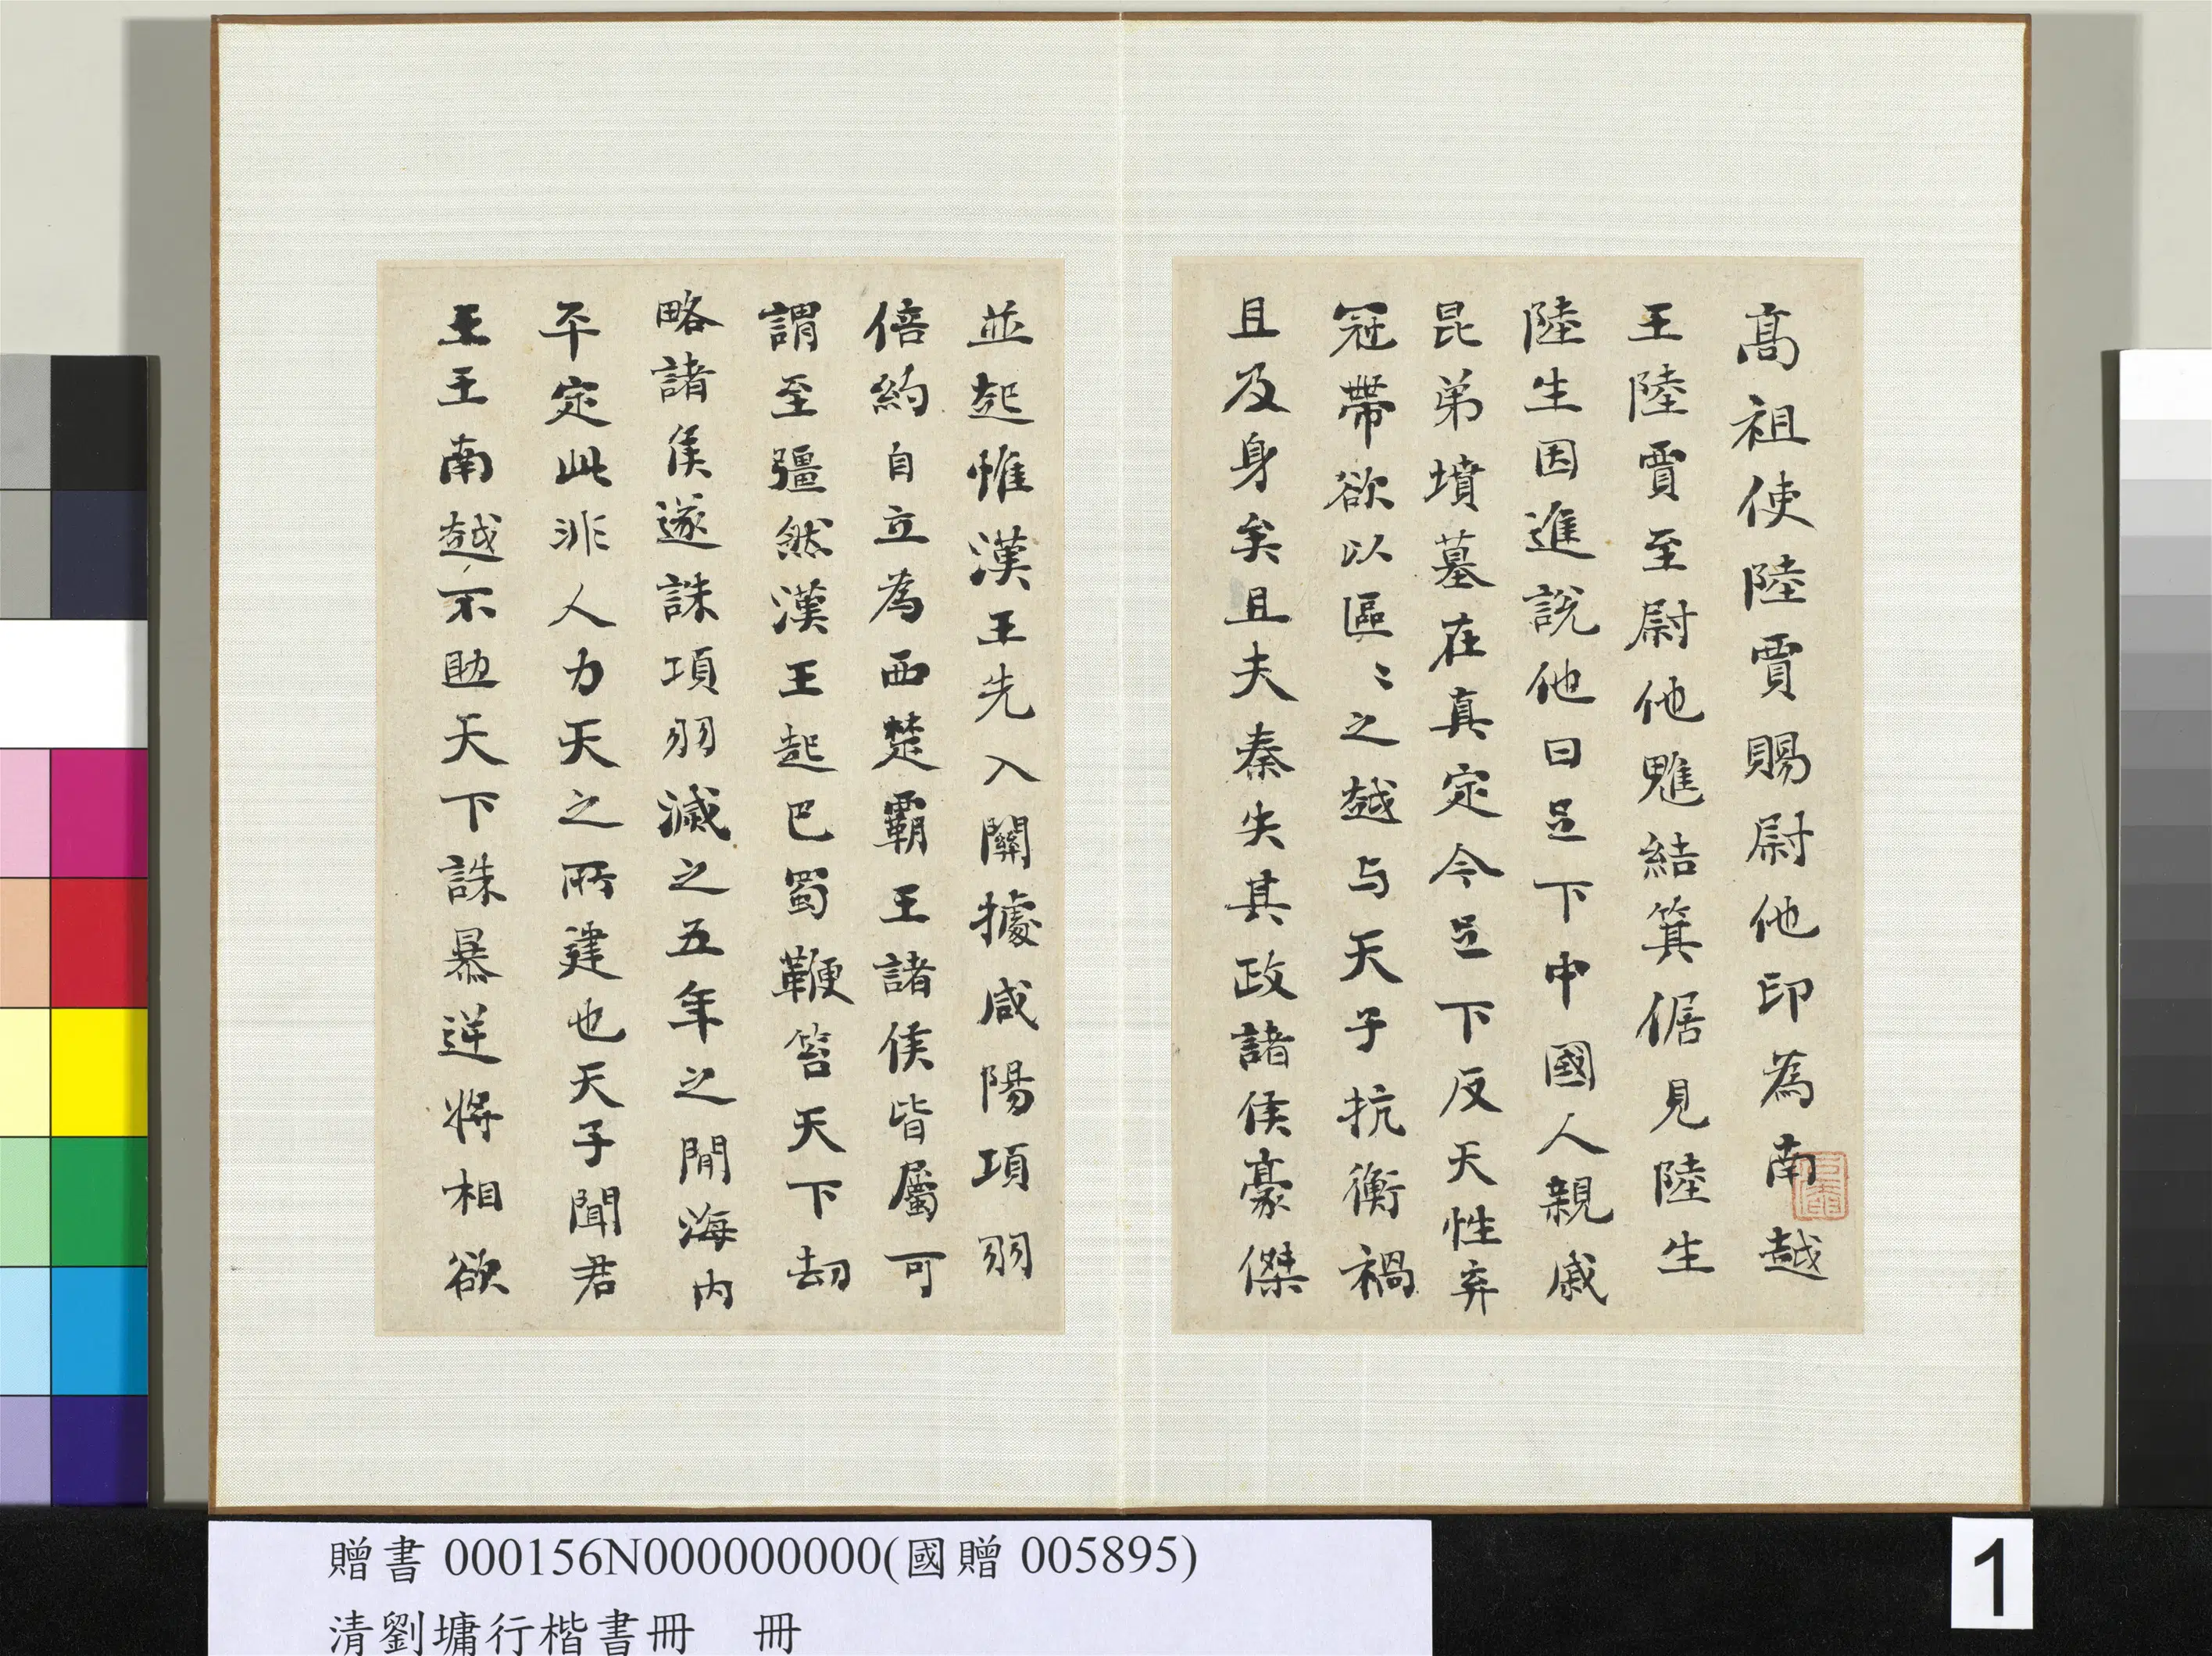 高祖使陸賈賜尉他印為南越
王陸賈至尉他魋結箕倨見陸生
陸生因進說他曰足下中國人親戚
昆弟墳墓在真定今足下反天性弃
冠帶欲以區〻之越与天子抗衡禍
且及身矣且夫秦失其政諸侯豪傑
並起惟漢王先入關據咸陽項羽
倍約自立為西楚霸王諸侯皆屬可
謂至彊然漢王起巴蜀鞭笞天下劫
略諸侯遂誅項羽滅之五年之間海内
平定此非人力天之所建也天子聞君
王王南越不助天下誅暴逆將相欲
贈書 000156N000000000(國贈 005895)
清劉墉行楷書冊 冊
1